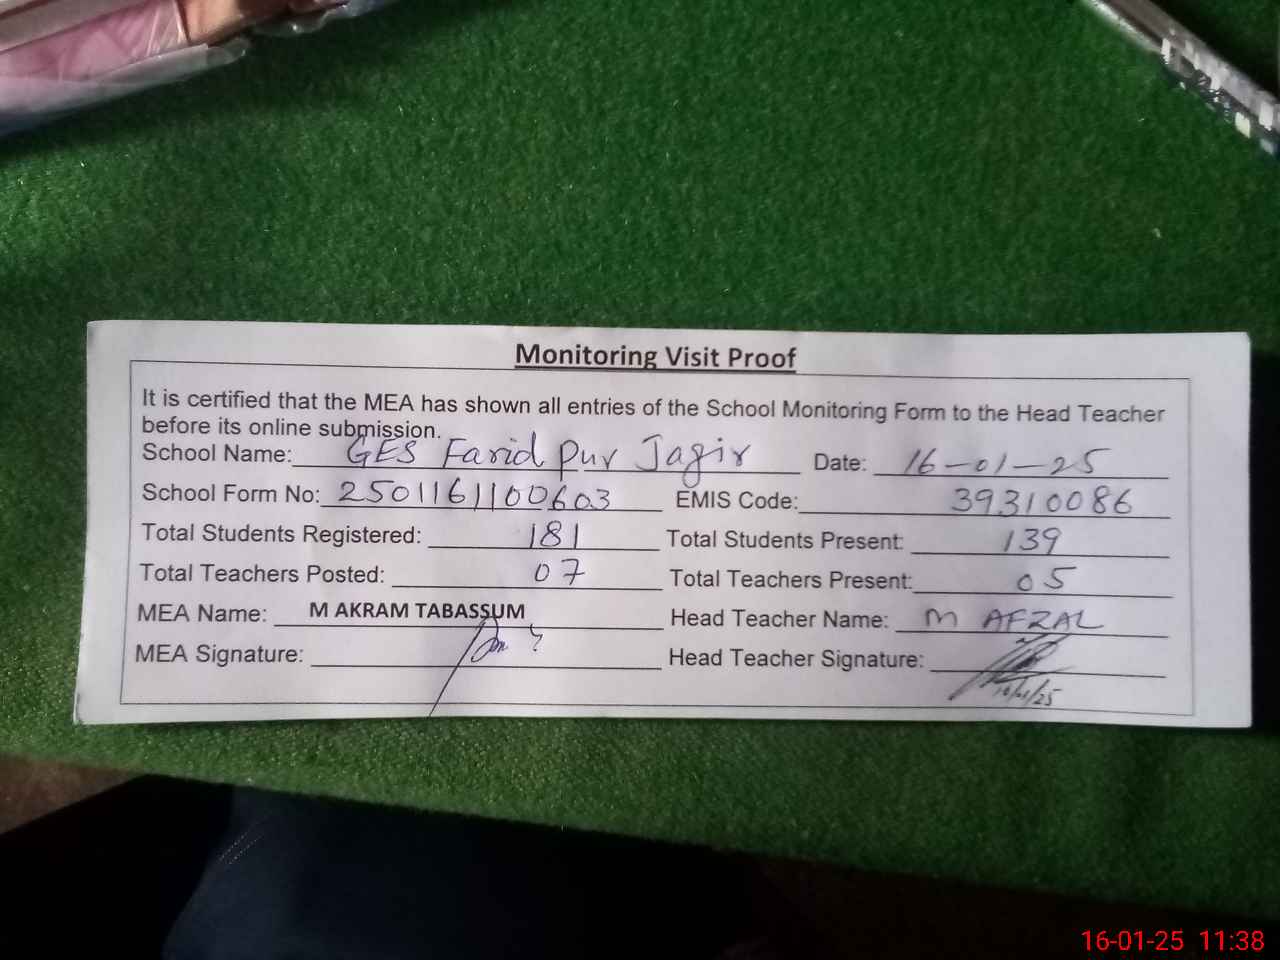 Monitoring Visit Proof
It is certified that the MEA has shown all entries of the School Monitoring Form to the Head Teacher
before its online submission.
School Name: GES Farid Pur Jagir Date: 16-01-25
School Form No: 2501161100603 EMIS Code: 39310086
Total Students Registered: 181 Total Students Present: 139
Total Teachers Posted: 07 Total Teachers Present: 05
MEA Name: M AKRAM TABASSUM Head Teacher Name: M AFZAL
MEA Signature: Head Teacher Signature:
16/01/25
16-01-25 11:38